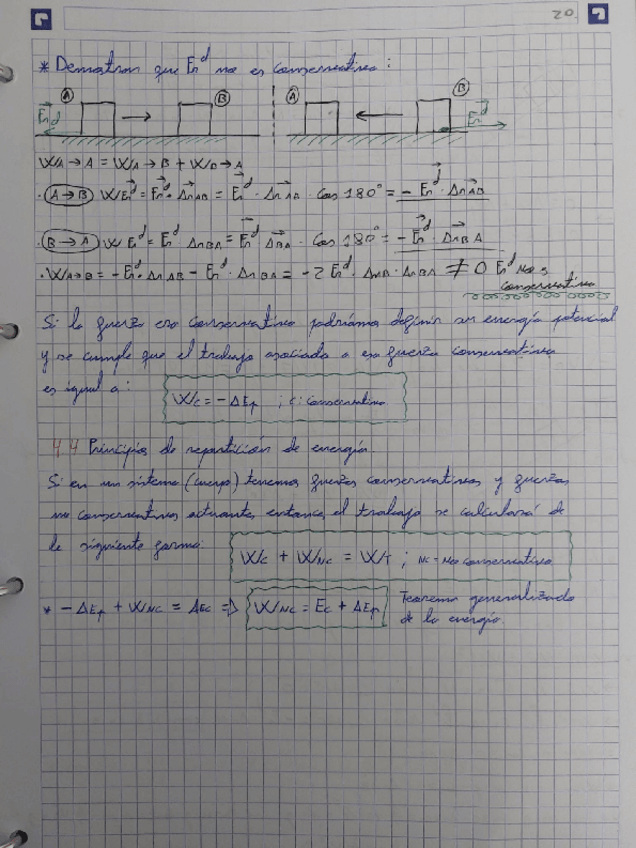 20
* Demostrar que Fr^d no es conservativa:
A B A B
Fr^d Fr^d
WA→A = WA→B + WB→A
· (A→B) WFr^d = Fr^d · ΔrAB = Fr^d · ΔrAB · Cos 180° = - Fr^d · ΔrAB
· (B→A) W Fr^d = Fr^d ΔrBA = Fr^d ΔrBA · Cos 180° = - Fr^d ΔrBA
· WA→B = - Fr^d · ΔrAB - Fr^d · ΔrBA = -2 Fr^d · ΔrAB · ΔrBA ≠ 0 Fr^d No es
conservativa
Si la fuerza es conservativa podríamos definir una energía potencial
y se cumple que el trabajo asociado a esa fuerza conservativa
es igual a:
Wc = -ΔEp ; c: conservativa
4.4 Principio de repartición de energía.
Si en un sistema (cuerpo) tenemos fuerzas conservativas y fuerzas
no conservativas actuantes, entonces el trabajo se calculará de
la siguiente forma:
Wc + WNC = WT ; NC = No conservativa
* -ΔEp + WNC = ΔEc ⇒ WNC = Ec + ΔEp
Teorema generalizado
de la energía